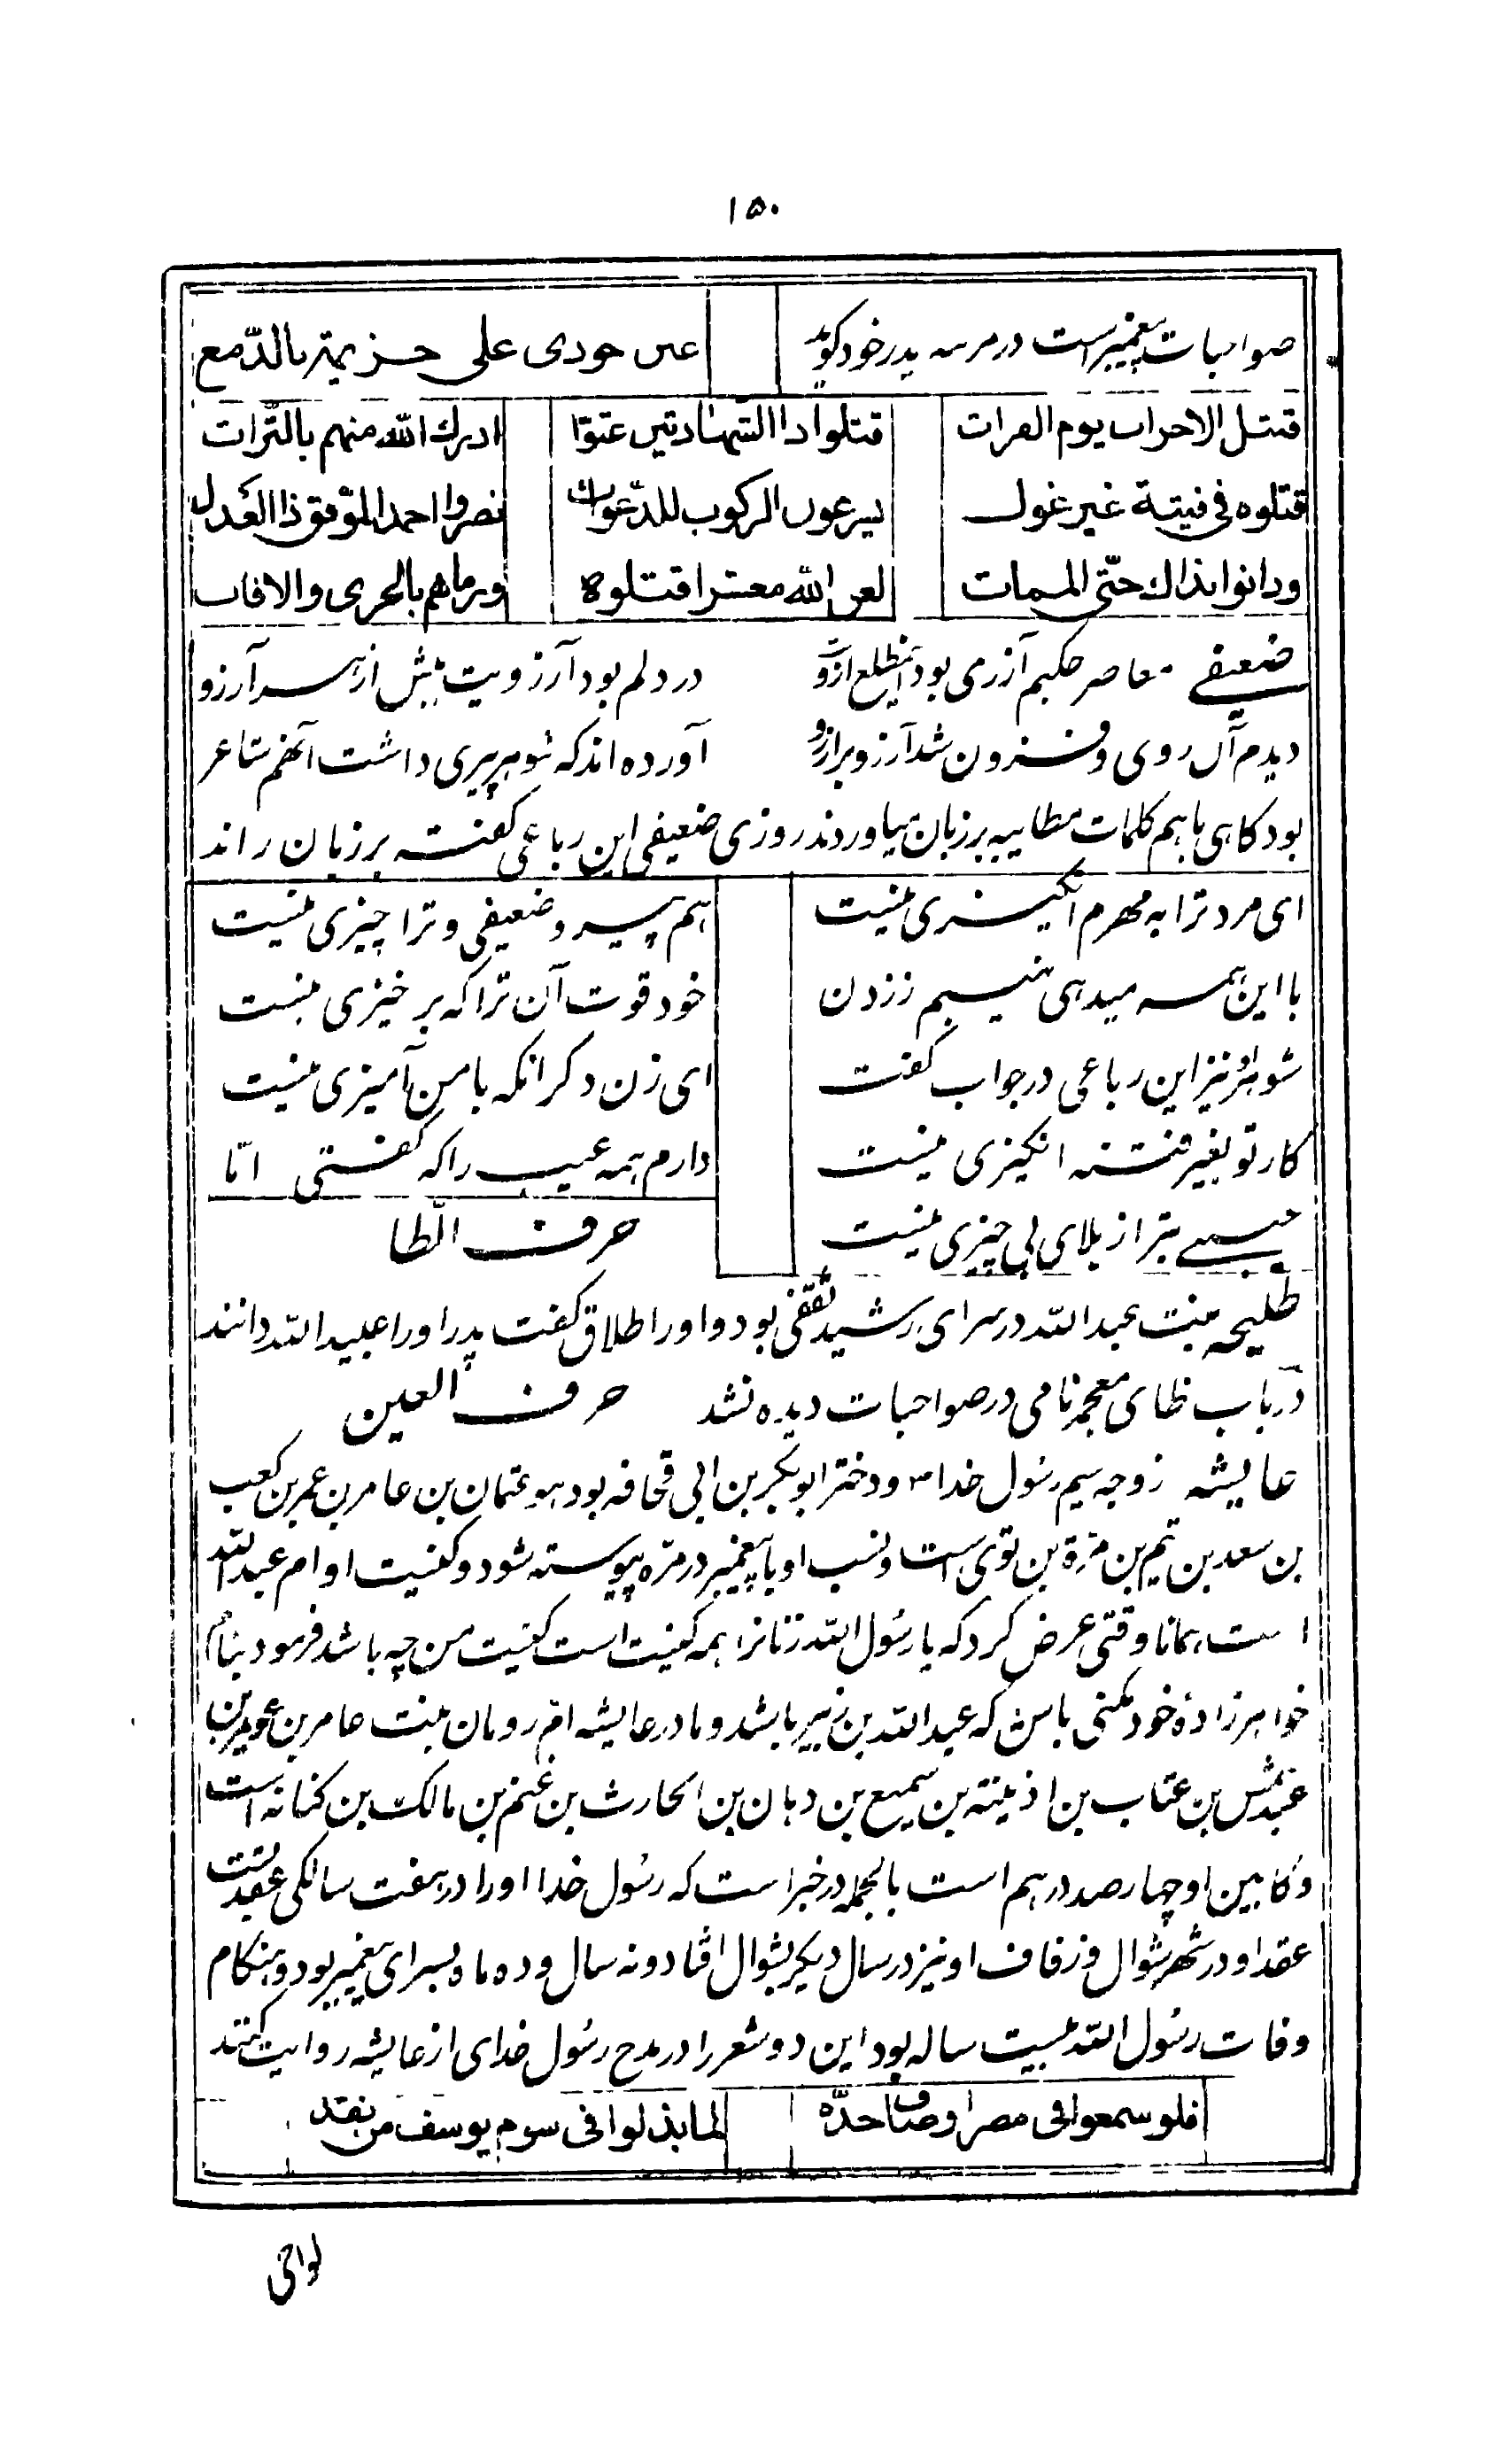 ۱۵۰
صواحبات پیغمبر است در مرثیه پدر خود کوید عین جودی علی خزیمة بالدّمع
قتل الاحراب یوم الفرات قتلوا ذا الشهادتین عتوّا ادرك الله منهم بالتّرات
قتلوه فی فتیة غیر غول یسرعون الرکوب للدّعوات نصروا احمد الموّفق ذا العدل
ودانوا بذاك حتّی الممات لعن الله معشرا قتلوه ورماهم بالخزی والافات
ضعیفی معاصر حکیم آذری بود این مطلع ازوست در دلم بود آرزویت بیش از هر آرزو
دیدم آن روی و فزون شد آرزو بر آرزو آورده اند که شوهر پیری داشت آنهم شاعر
بود کاهی باهم کلمات مطایبه بر زبان میاوردند روزی ضعیفی این رباعی گفته بر زبان راند
ای مرد ترا به مهرم انگیزی نیست هم پیر و ضعیفی و ترا چیزی نیست
با این همه میدهی نهیبم ز زدن خود قوت آن ترا که بر خیزی نیست
شوهرش نیز این رباعی در جواب گفت ای زن دگر انکه با من آمیزی نیست
کار تو بغیر فتنه انگیزی نیست دارم همه عیب را که گفتی امّا
عیبی بتر از بلای بی چیزی نیست حرف الطّا
طلیحه بنت عبد الله در سرای رشید ثقفی بود و او را طلاق گفت پدر او را عبید الله دانند
در باب ظای معجمه نامی در صواحبات دیده نشد حرف العین
عایشه زوجه سیم رسول خدا ص و دختر ابو بکر بن ابی قحافه بود هو عثمان بن عامر بن عمر بن کعب
بن سعد بن تیم بن مرة بن توی است و نسب او با پیغمبر در مرّه پیوسته شود و کنیت او ام عبد الله
است همانا وقتی عرض کرد که یا رسول الله زنانرا همه کنیت است کنیت من چه باشد فرمود بنام
خواهر زادهٔ خود مکنی باش که عبد الله بن زبیر باشد و مادر عایشه امّ رومان بنت عامر بن عویمر بن
عبد شمس بن عتاب بن اذینة بن سمیع بن دهان بن الحارث بن غنم بن مالک بن کنانه است
و کابین او چهارصد درهم است بالجمله در خبر است که رسول خدا او را در هفت سالگی عقد بست
عقد او در شهر شوال و زفاف او نیز در سال دیگر بشوال افتاد و نه سال و ده ماه بسرای پیغمبر بود و هنکام
وفات رسول الله بیست ساله بود این دو شعر را در مدح رسول خدای از عایشه روایت کنند
فلو سمعوا فی مصر اوصاف خدّه لما بذلوا فی سوم یوسف من نقد
لواحی